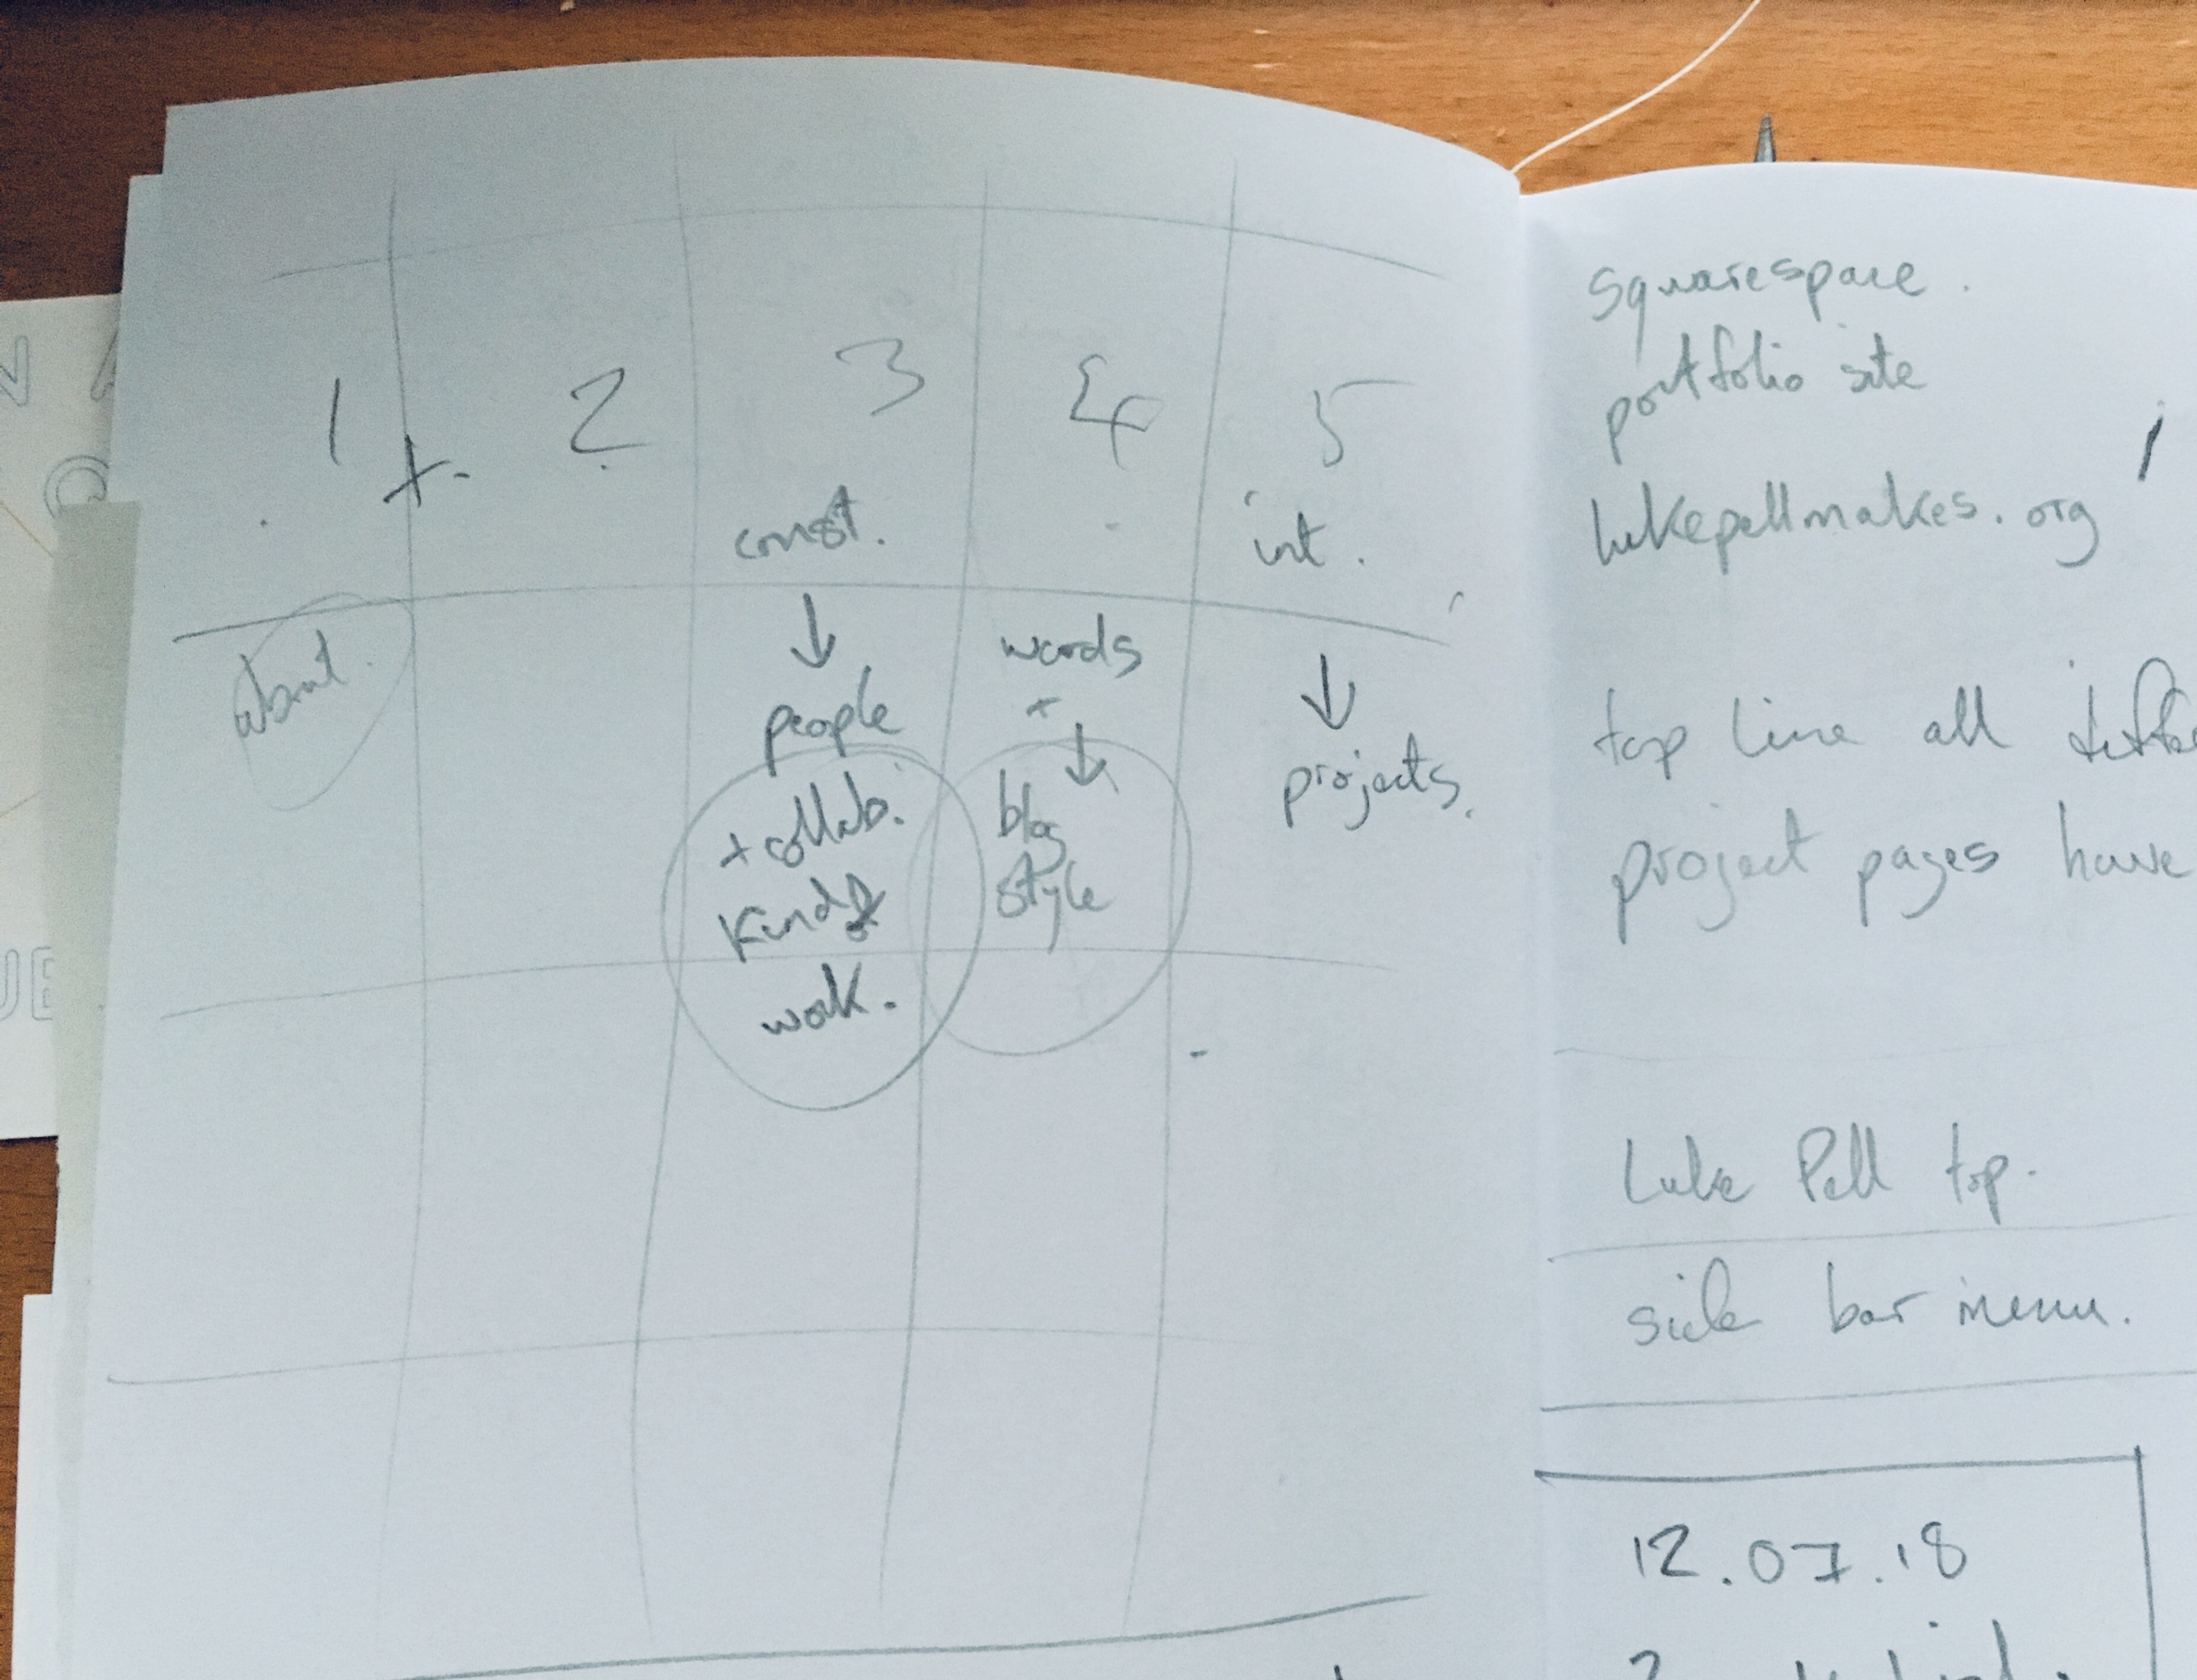 1 + 2 3 4 5
const. int.
about.
words
+
people
projects.
+ collab.
blog
kinds of
style
work.
squarespace.
portfolio site
lukepellmakes.org
top line all
project pages have
Luke Pell top.
side bar menu.
12.07.18